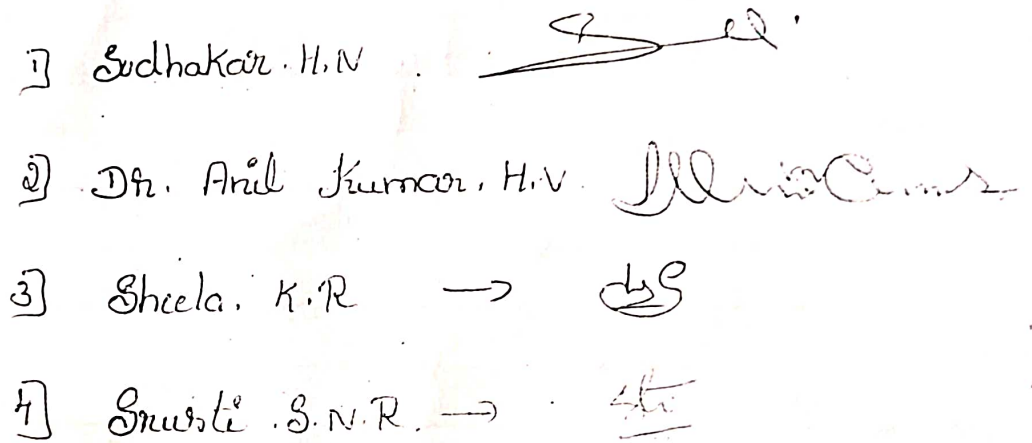 1] Sudhakar. H.N
2] Dr. Anil Kumar. H.V.
3] Sheela. K.R →
4] Srusti .S.N.R. →